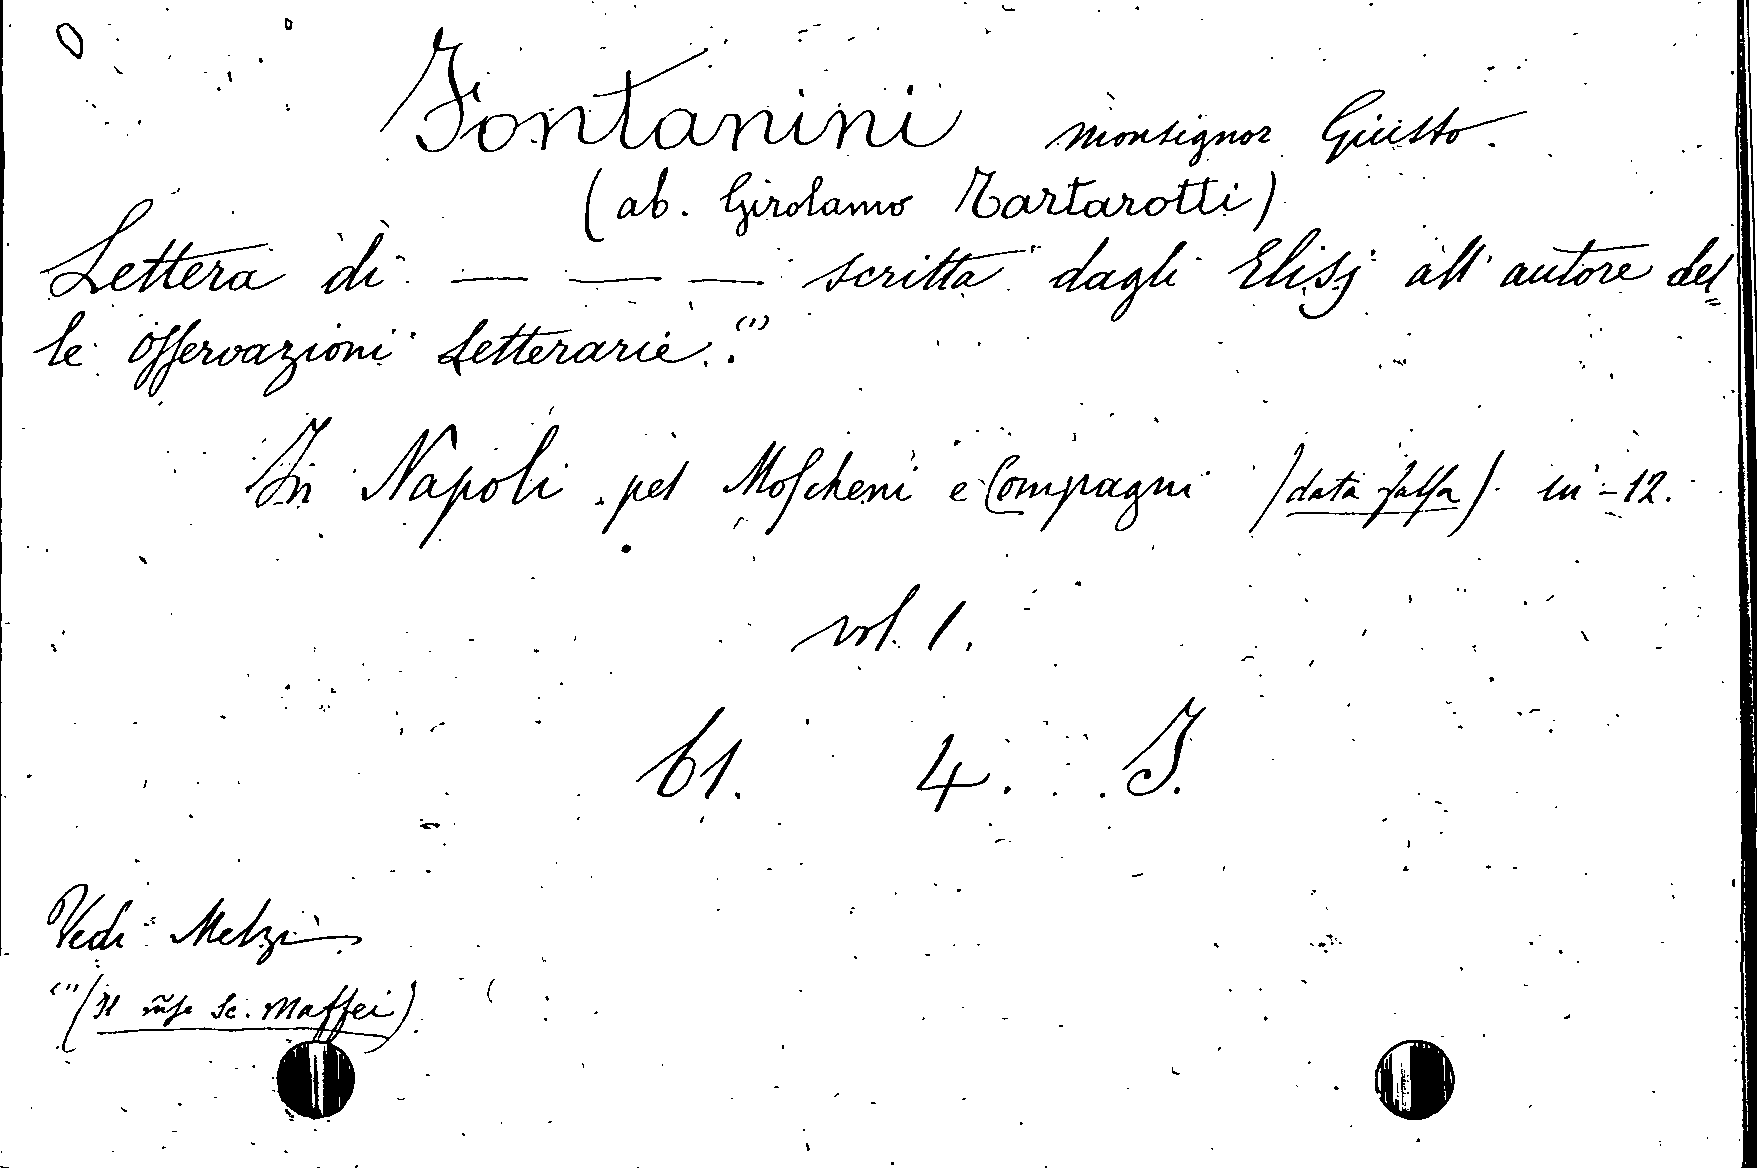 Fontanini monsignor Giusto.
(ab. Girolamo Tartarotti)
Lettera di — — — scritta dagli Elisj all'autore del=
le Osservazioni Letterarie.(1)
In Napoli pel Moscheni e Compagni (data falsa) in-12.
vol. 1.
61. 4. I.
Vedi Melzi
(1) (Il Sc. Maffei)